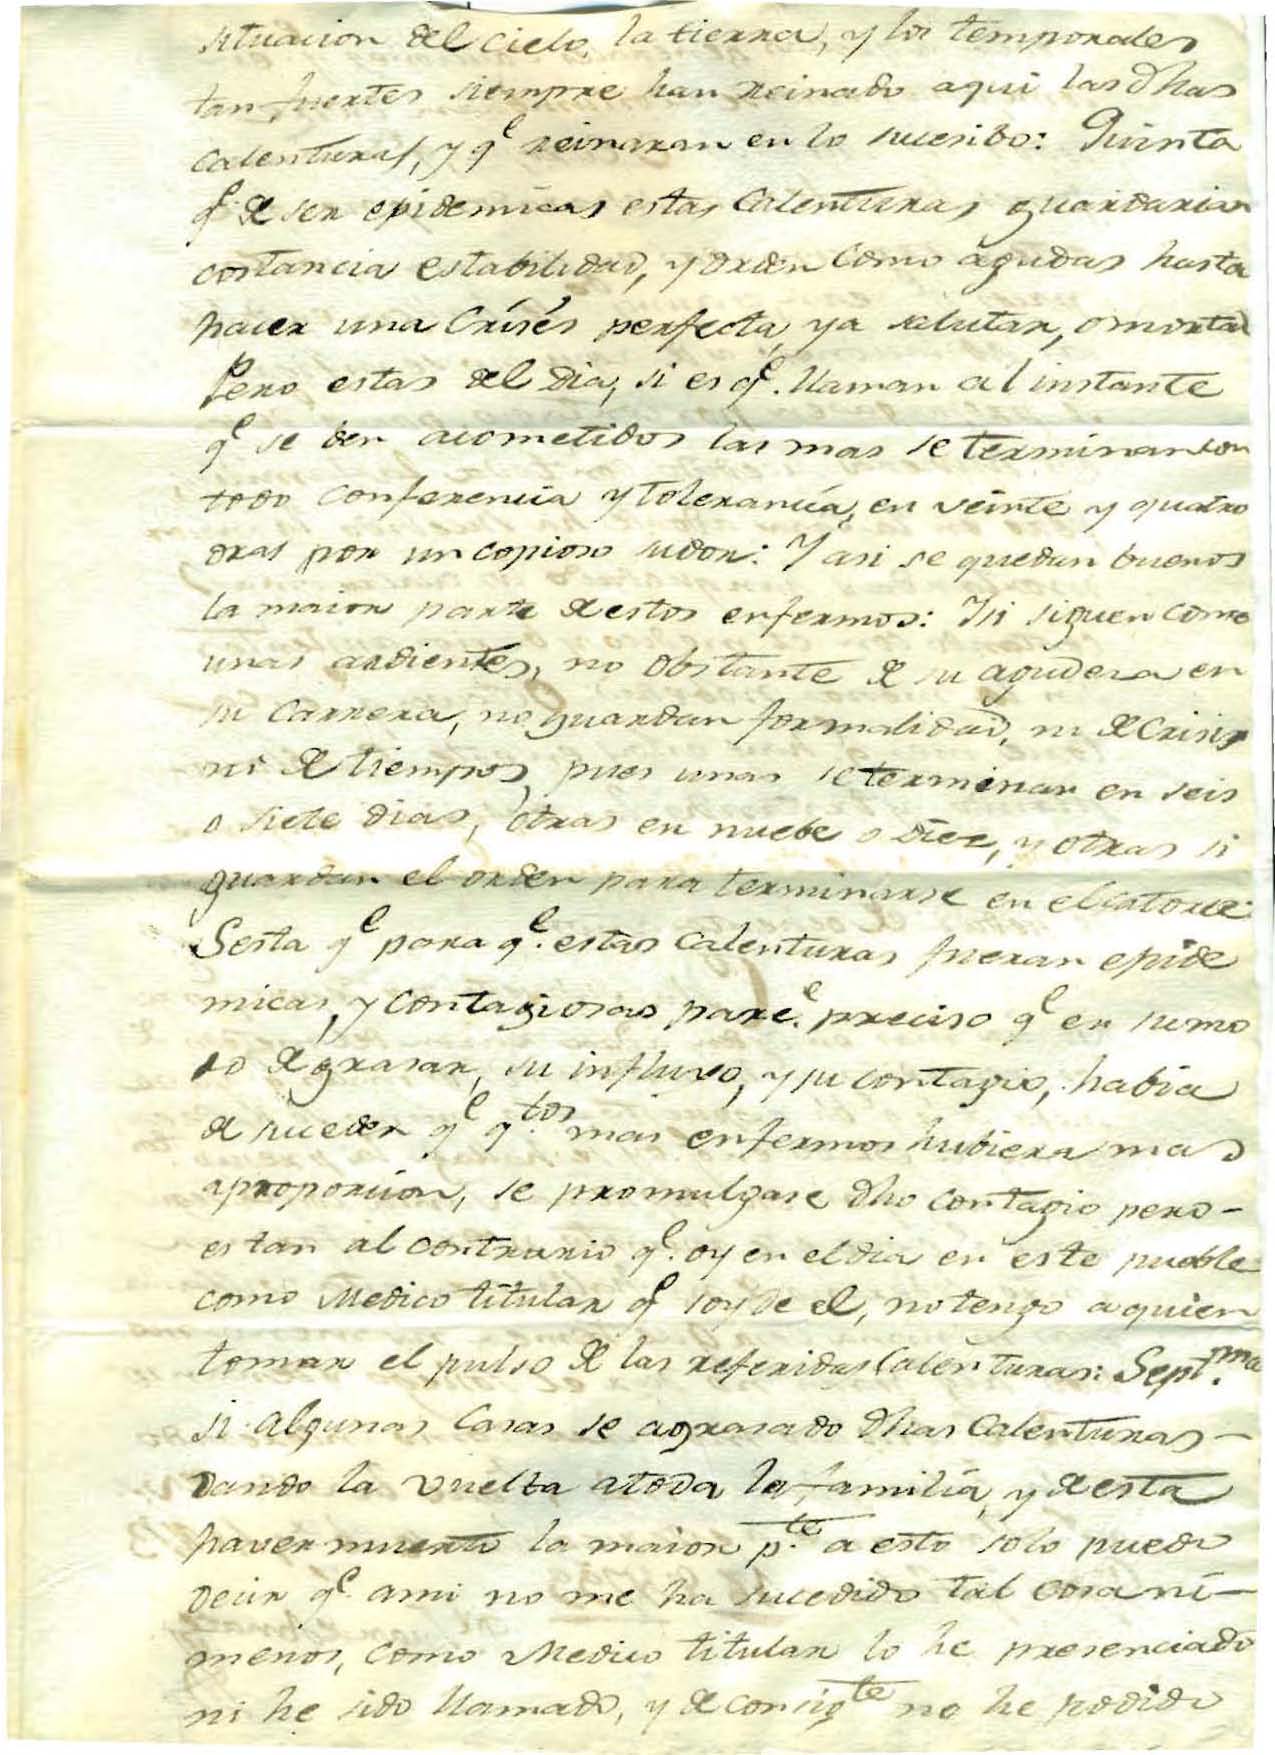 situacion del cielo, la tierra, y los temporales
tan fuertes siempre han reinado aqui las dhas
calenturas, y q.e reinaran en lo sucesibo: Quinta
q.e de ser epidemicas estas Calenturas guardarian
costancia estabilidad, y orden como agudas hasta
hacer una Crisés perfecta, ya salutar, o mortal
Pero estas del dia, si es q.e llaman al instante
q.e se ben acometidos las mas se terminan con
todo conferencia y tolerancia, en veinte y quatro
oras por un copioso sudor: Y asi se quedan buenos
la maior parte de estos enfermos: Y si siguen como
unas ardientes, no obstante de su agudeza en
su carrera, no guardan formalidad, ni de crisis
ni de tiempos, pues unas se terminan en seis
o siete dias, otras en nuebe o diez, y otras si
guardan el orden para terminarse en el catorce:
Sesta q.e para q.e estas calenturas fueran epide
micas, y contagiosas parec.e preciso q.e en su mo
do de grasar, su influxo, y su contagio, habia
de suceder q.e q.tos mas enfermos hubiera mas
aproporcion, se promulgase dho contagio pero-
es tan al contrario q.e oy en el dia en este pueblo
como Medico titular q.e soy de el, no tengo a quien
tomar el pulso de las referidas Calenturas: Sept.ma
si algunas Casas se agrasado dhas Calenturas-
dando la vuelta a toda la familia, y de esta
haver muerto la maior p.te a esto solo puedo
decir q.e ami no me ha sucedido tal cosa ni-
menos, como Medico titular lo he presenciado
ni he sido llamado, y de consig.te no he podido